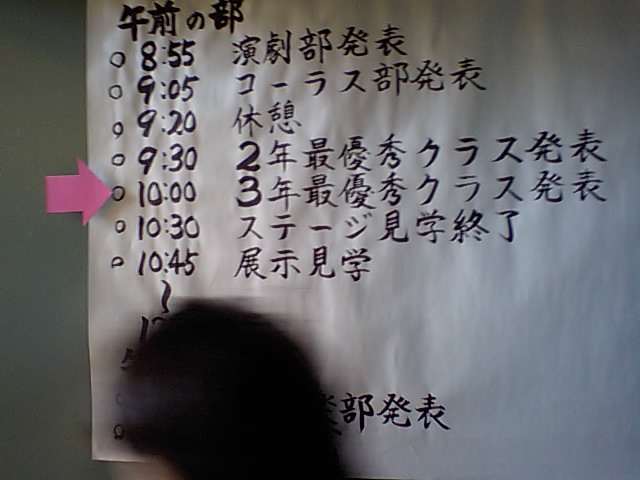 午前の部
○ 8:55 演劇部発表
○ 9:05 コーラス部発表
○ 9:20 休憩
○ 9:30 2年最優秀クラス発表
○ 10:00 3年最優秀クラス発表
○ 10:30 ステージ見学終了
○ 10:45 展示見学
〜
部発表